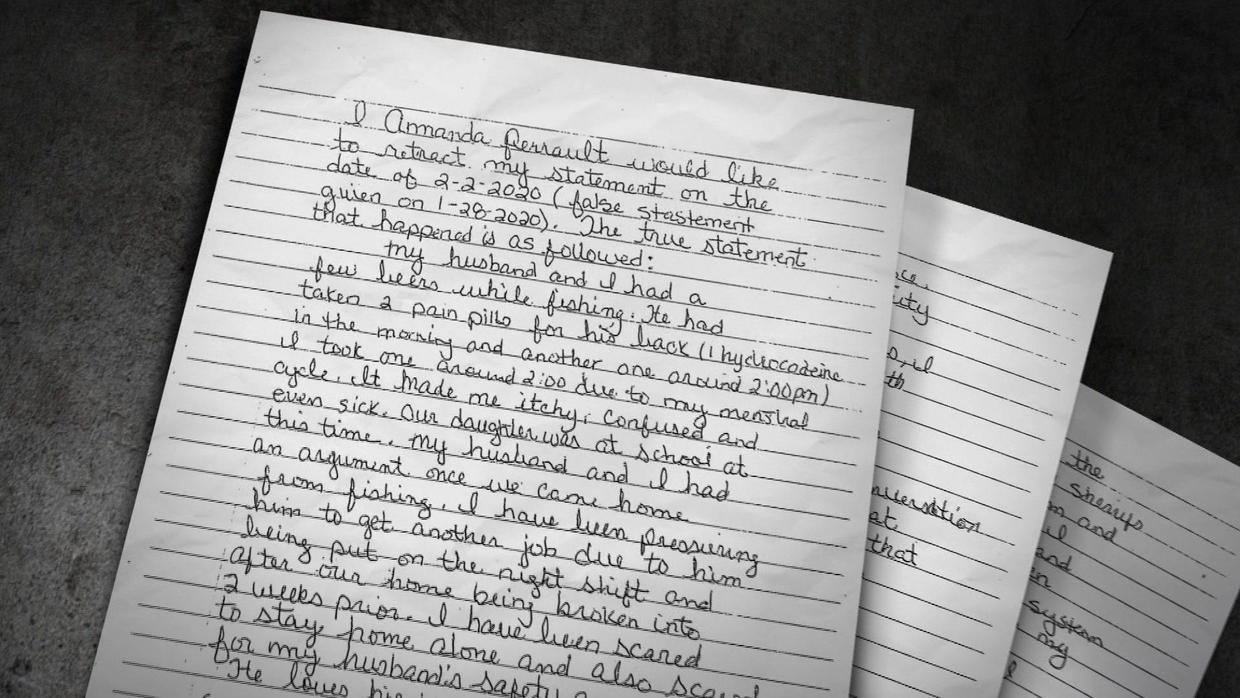 I Amanda Perrault would like
to retract my statement on the
date of 2-2-2020 (false stastement
guien on 1-28-2020). The true statement
that happened is as followed:
my husband and I had a
few beers while fishing. He had
taken 2 pain pills for his back (1 hydrocodeine
in the morning and another one around 2:00pm)
I took one around 2:00 due to my menstral
cycle. It made me itchy, confused and
even sick. Our daughter was at school at
this time. My husband and I had
an argument once we came home
from fishing. I have been pressuring
him to get another job due to him
being put on the night shift and
after our home being broken into
2 weeks prior. I have been scared
to stay home alone and also scared
for my husband's safety
He loves his
the
sheriffs
and
and
system
my
that
at